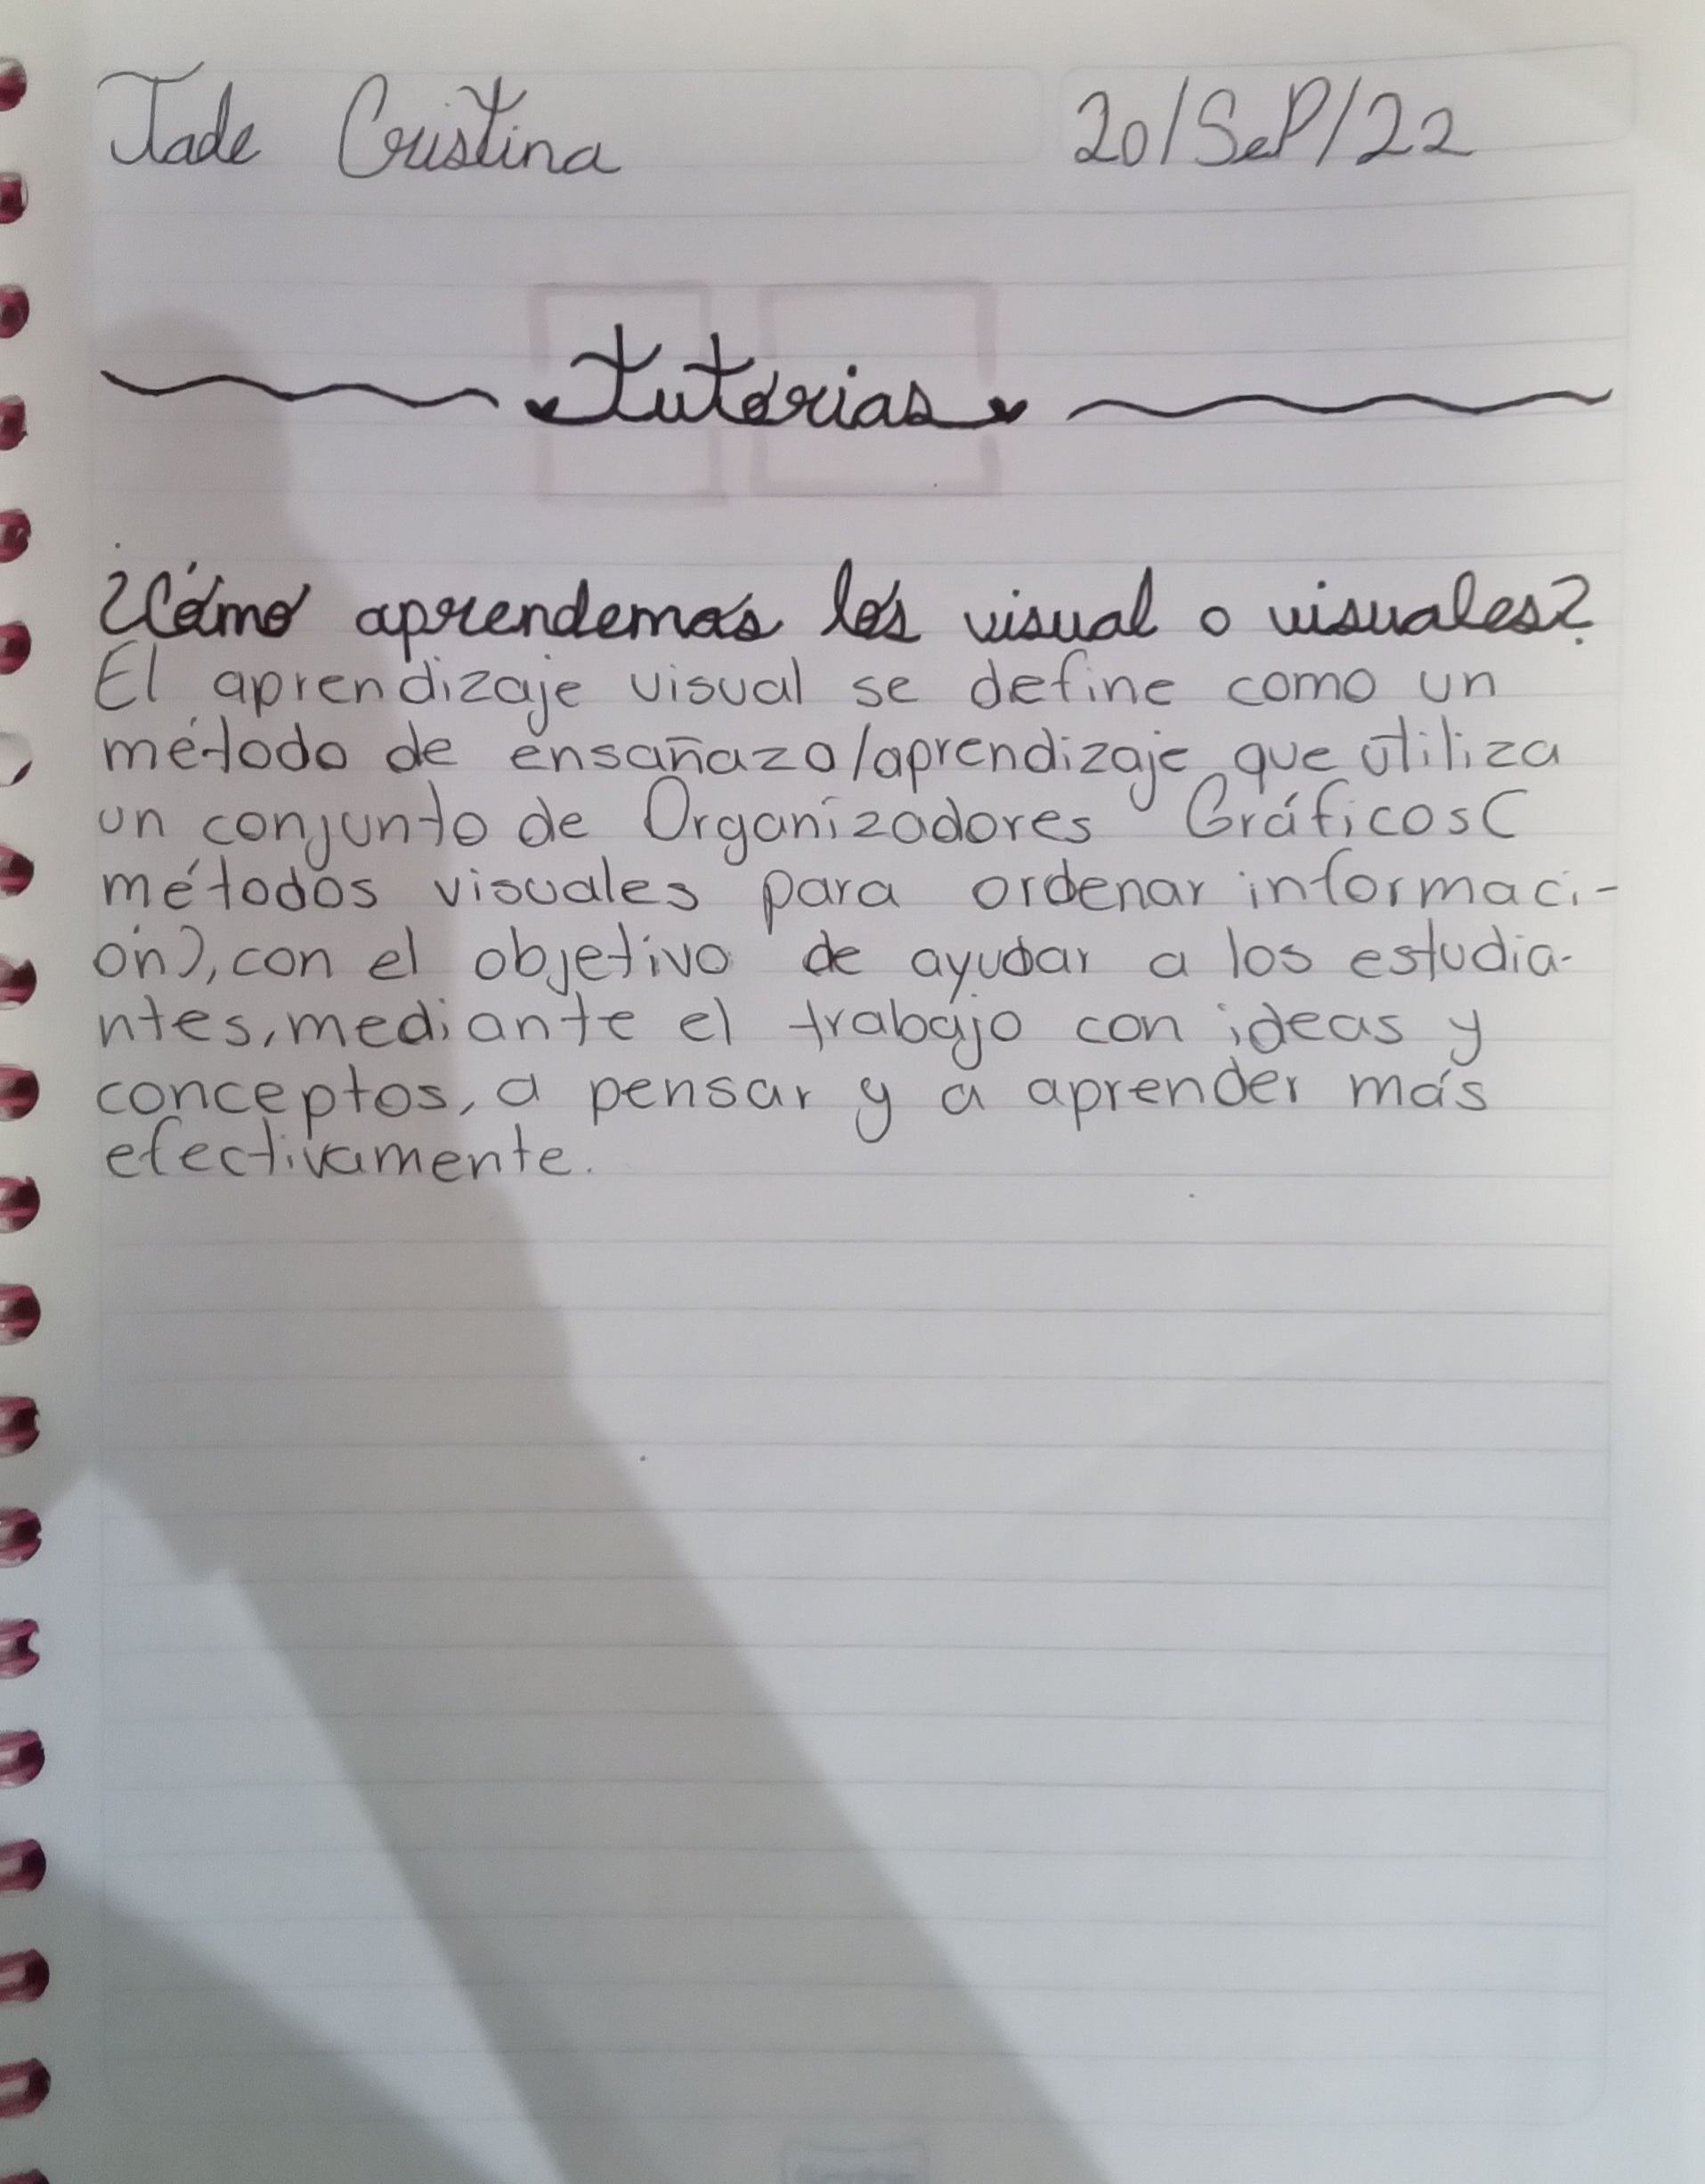 Jade Cristina 20/SeP/22
tutorias
¿Cómo aprendemos los visual o visuales?
El aprendizaje visual se define como un
método de ensañaza/aprendizaje que utiliza
un conjunto de Organizadores Gráficos(
métodos visuales para ordenar informaci-
ón), con el objetivo de ayudar a los estudia-
ntes, mediante el trabajo con ideas y
conceptos, a pensar y a aprender más
efectivamente.